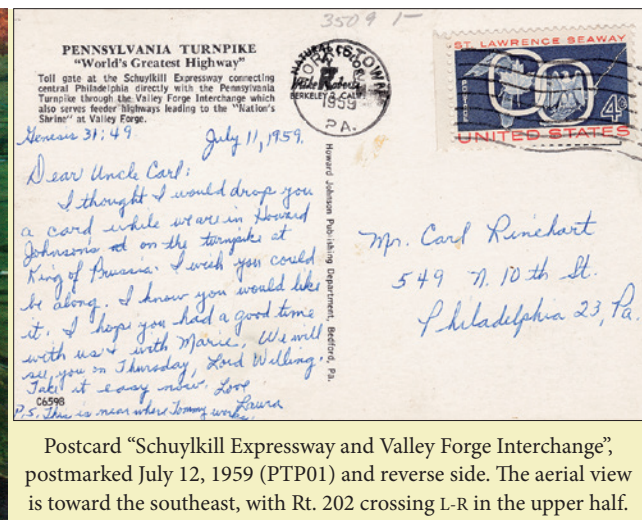 3509 1-
PENNSYLVANIA TURNPIKE
“World's Greatest Highway”
Toll gate at the Schuylkill Expressway connecting
central Philadelphia directly with the Pennsylvania
Turnpike through the Valley Forge Interchange which
also serves feeder highways leading to the “Nation's
Shrine” at Valley Forge.
Genesis 31:49. July 11, 1959.
Dear Uncle Carl:
I thought I would drop you
a card while we are in Howard
Johnson's on the turnpike at
King of Prussia. I wish you could
be along. I know you would like
it. I hope you had a good time
with us & with Marie. We will
see you on Thursday, Lord Willing.
Take it easy now. Love
Laura
C6598
P.S. This is near where Tommy works.
Howard Johnson Publishing Department, Bedford, Pa.
NATURAL COLOR
Mike Roberts
BERKELEY 2, CALIF.
1959
PA.
ST. LAWRENCE SEAWAY
4¢
UNITED STATES
Mr. Carl Rinehart
549 N. 10th St.
Philadelphia 23, Pa.
Postcard “Schuylkill Expressway and Valley Forge Interchange”,
postmarked July 12, 1959 (PTP01) and reverse side. The aerial view
is toward the southeast, with Rt. 202 crossing L-R in the upper half.